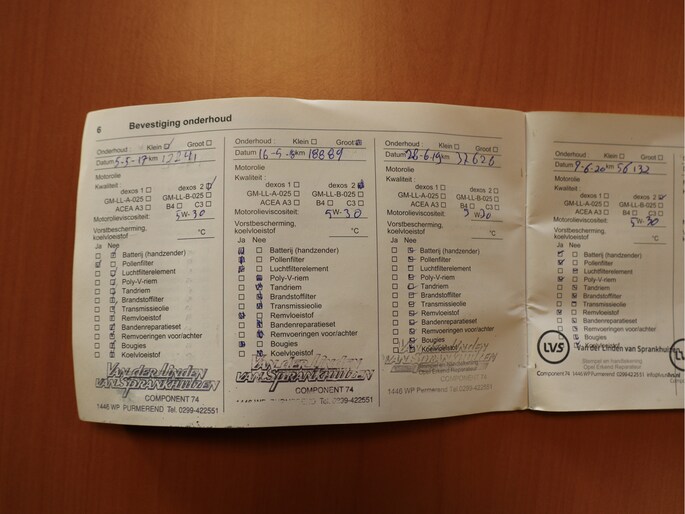 6 Bevestiging onderhoud
Onderhoud : Klein Groot
Datum 5-5-17 km 12241
Motorolie
Kwaliteit :
dexos 1 dexos 2
GM-LL-A-025 GM-LL-B-025
ACEA A3 B4 C3
Motorolieviscositeit: 5W-30
Vorstbescherming,
koelvloeistof °C
Ja Nee
Batterij (handzender)
Pollenfilter
Luchtfilterelement
Poly-V-riem
Tandriem
Brandstoffilter
Transmissieolie
Remvloeistof
Bandenreparatieset
Remvoeringen voor/achter
Bougies
Koelvloeistof
VAN DER LINDEN
VAN SPRANKHUIZEN
COMPONENT 74
1446 WP PURMEREND Tel. 0299-422551
Onderhoud : Klein Groot
Datum km 18889
Motorolie
Kwaliteit :
dexos 1 dexos 2
GM-LL-A-025 GM-LL-B-025
ACEA A3 B4 C3
Motorolieviscositeit: 5W-30
Vorstbescherming,
koelvloeistof °C
Ja Nee
Batterij (handzender)
Pollenfilter
Luchtfilterelement
Poly-V-riem
Tandriem
Brandstoffilter
Transmissieolie
Remvloeistof
Bandenreparatieset
Remvoeringen voor/achter
Bougies
Koelvloeistof
VAN DER LINDEN
VAN SPRANKHUIZEN
COMPONENT 74
1446 WP PURMEREND Tel. 0299-422551
Onderhoud : Klein Groot
Datum km
Motorolie
Kwaliteit :
dexos 1 dexos 2
GM-LL-A-025 GM-LL-B-025
ACEA A3 B4 C3
Motorolieviscositeit: 5W30
Vorstbescherming,
koelvloeistof °C
Ja Nee
Batterij (handzender)
Pollenfilter
Luchtfilterelement
Poly-V-riem
Tandriem
Brandstoffilter
Transmissieolie
Remvloeistof
Bandenreparatieset
Remvoeringen voor/achter
Bougies
Koelvloeistof
VAN SPRANKHUIZEN
Opel Erkend Reparateur
COMPONENT 74
1446 WP PURMEREND Tel. 0299-422551
Onderhoud : Klein Groot
Datum 9-6-20 km 56132
Motorolie
Kwaliteit :
dexos 1 dexos 2
GM-LL-A-025 GM-LL-B-025
ACEA A3 B4 C3
Motorolieviscositeit: 5W-30
Vorstbescherming,
koelvloeistof °C
Ja Nee
Batterij (handzender)
Pollenfilter
Luchtfilterelement
Poly-V-riem
Tandriem
Brandstoffilter
Transmissieolie
Remvloeistof
Bandenreparatieset
Remvoeringen voor/achter
Bougies
LVS Van der Linden van Sprankhuizen
Opel Erkend Reparateur
Component 74 1446 WP Purmerend 0299-422551